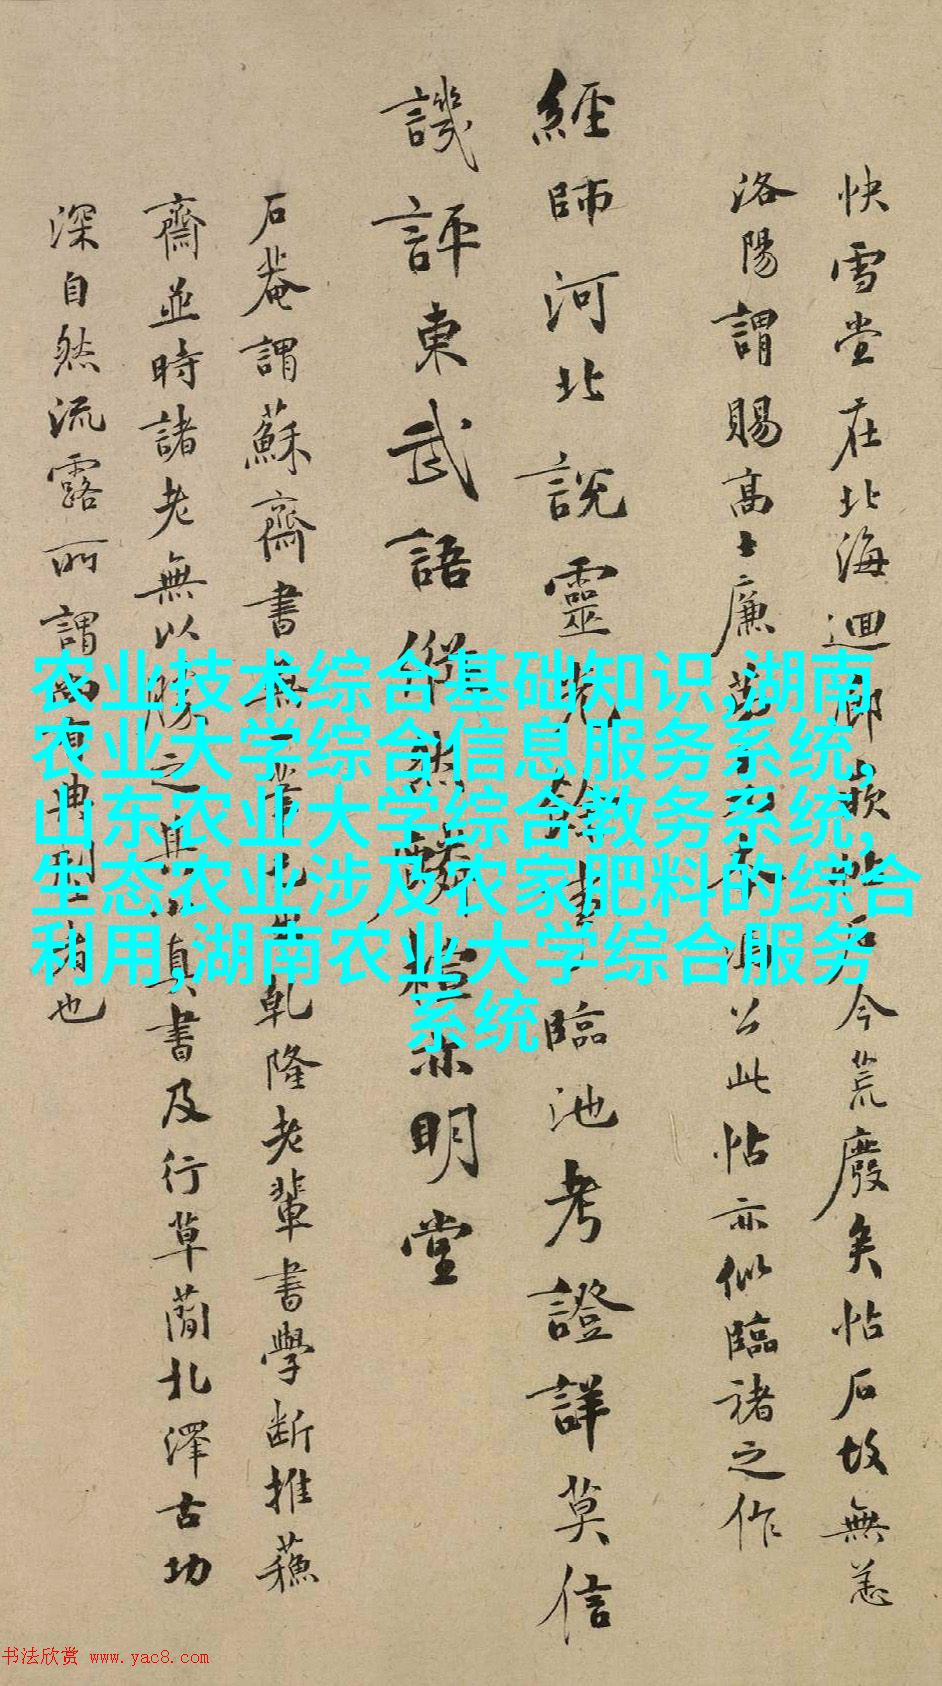 快雪堂在北海迴廊嵌帖石今荒廢矣帖石故無恙
洛陽謂賜高士廉公此帖亦似臨褚之作
經師河北說靈光餘事臨池考證詳莫信
譏評東武語縱然禮亦明堂
石菴謂蘇齋書無一筆乾隆老輩書學断推蘇
齋並時諸老無以勝之其小真書及行草簡札澤古功
深自然流露所謂尚有典型者也
农业技术综合基础知识,湖南
农业大学综合信息服务系统,
山东农业大学综合教务系统,
生态农业涉及农家肥料的综合
利用,湖南农业大学综合服务
系统
书法欣赏 www.yac8.com